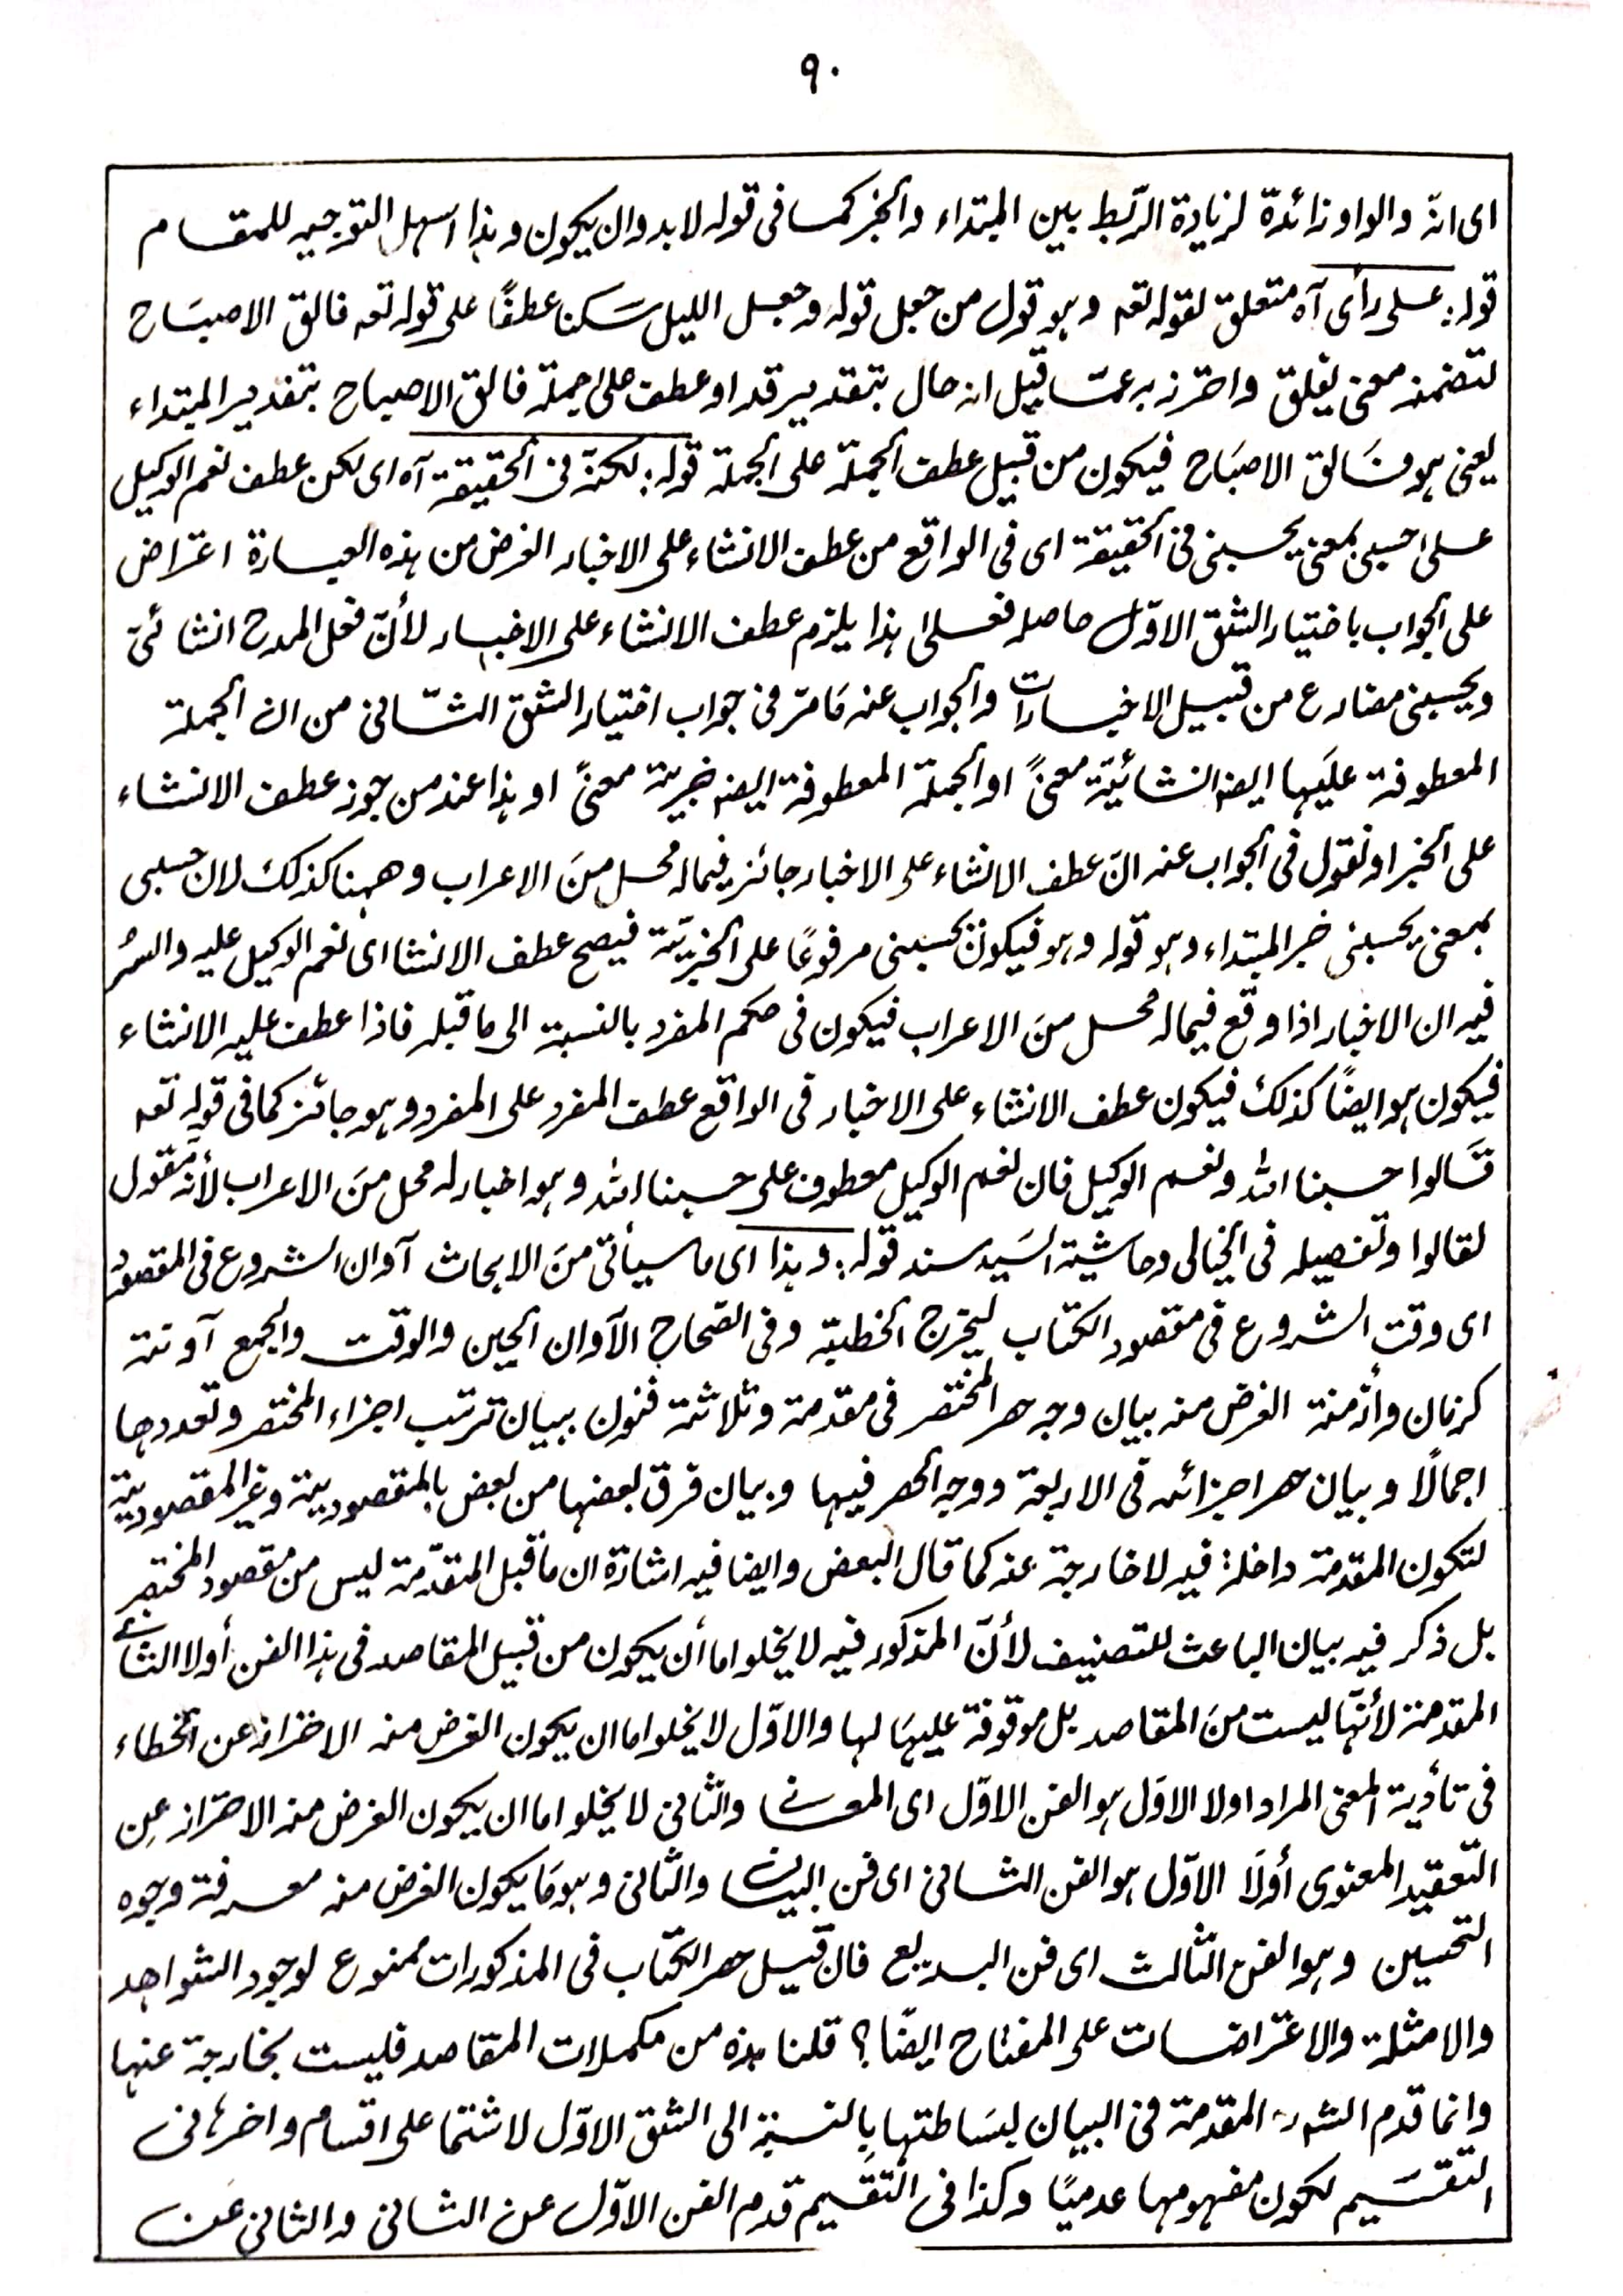 ٩٠
اى انه والواو زائدة لزيادة الرّبط بين المبتداء والخبر كما فى قوله لا بد وان يكون وهذا اسهل التوجيه للمقام
قوله: على رأى آه متعلق لقوله تعه وهو قول من جعل قوله وجعل الليل سكنا عطفًا على قوله تعه فالق الاصباح
لتضمنه معنى يفلق واحترز به عمّا قيل انه حال بتقدير قد او عطف على جملة فالق الاصباح بتقدير المبتداء
يعنى هو فالق الاصبَاح فيكون من قبيل عطف الجملة على الجملة قوله: لكنه فى الحقيقة آه اى لكن عطف نعم الوكيل
على حسبى بمعنى يحسبنى فى الحقيقة اى فى الواقع من عطف الانشاء على الاخبار الغرض من هذه العبارة اعتراض
على الجواب باختيار الشق الاوّل حاصله فعلى هذا يلزم عطف الانشاء على الاخبار لأنّ فعل المدح انشائىّ
ويحسبنى مضارع من قبيل الاخبارات والجواب عنه مَا مرّ فى جواب اختيار الشق الثّانى من ان الجملة
المعطوفة عليَها ايضه انشائيّة معنىً او الجملة المعطوفة ايضه خبرية معنىً او هذا عند من جوز عطف الانشاء
على الخبر او نقول فى الجواب عنه انّ عطف الانشاء على الاخبار جائز فيما له محل منَ الاعراب وههنا كذلك لان حسبى
بمعنى يحسبنى خبر المبتداء وهو قوله وهو فيكون يحسبنى مرفوعًا على الخبريّة فيصح عطف الانشا اى نعم الوكيل عليه والسُر
فيه ان الاخبار اذا وقع فيما له محل منَ الاعراب فيكون فى حكم المفرد بالنسبة الى ما قبله فاذا عطف عليه الانشاء
فيكون هو ايضًا كذلك فيكون عطف الانشاء على الاخبار فى الواقع عطف المفرد على المفرد وهو جائز كما فى قوله تعه
قَالوا حسبنا الله ونعم الوكيل فان نعم الوكيل معطوف على حسبنا الله وهو اخبار له محل منَ الاعراب لأنه مقول
لقالوا وتفصيله فى الخيالى وحاشية السَيد سند قوله: وهذا اى ما سيأتى منَ الابحاث آوان الشروع فى المقصود
اى وقت الشروع فى مقصود الكتاب ليخرج الخطبة وفى الصّحاح الآوان الحين والوقت والجمع آونة
كزمان وأزمنة الغرض منه بيان وجه حصر المختصر فى مقدمة وثلاثة فنون ببيان ترتب اجزاء المختصر وتعددها
اجمالًا وبيان حصر اجزائه فى الاربعة ووجه الحصر فيها وبيان فرق بعضها من بعض بالمقصودية وغير المقصودية
لتكون المقدمة داخلة فيه لا خارجة عنه كما قال البعض وايضا فيه اشارة ان ما قبل المقدّمة ليس من مقصود المختصر
بل ذكر فيه بيان الباعث للتصنيف لأنّ المذكور فيه لا يخلو اما أن يكون من قبيل المقاصد فى هذا الفن أولا الثانى
المقدمة لأنّها ليست منَ المقاصد بل موقوفة عليهَا لها والاوّل لا يخلو اما ان يكون الغرض منه الاحتراز عن الخطاء
فى تأدية المعنى المراد اولا الاوّل هو الفن الاوّل اى المعانى والثّانى لا يخلو اما ان يكون الغرض منه الاحتراز عن
التّعقيد المعنوى أولَا الاوّل هو الفن الثانى اى فن البيان والثانى وهو مَا يكون الغرض منه معرفة وجوه
التحسين وهو الفن الثالث اى فن البديع فان قيل حصر الكتاب فى المذكورات ممنوع لوجود الشواهد
والامثلة والاعتراضات على المفتاح ايضًا؟ قلنا هذه من مكملات المقاصد فليست بخارجة عنها
وانما قدم المقدمة فى البيان لبسَاطتها بالنسبة الى الشق الاوّل لاشتما على اقسام واخرها فى
التقسَيم لكون مفهومها عدميًا وكذا فى التقسيم قدم الفن الاوّل عن الثانى والثانى عَن